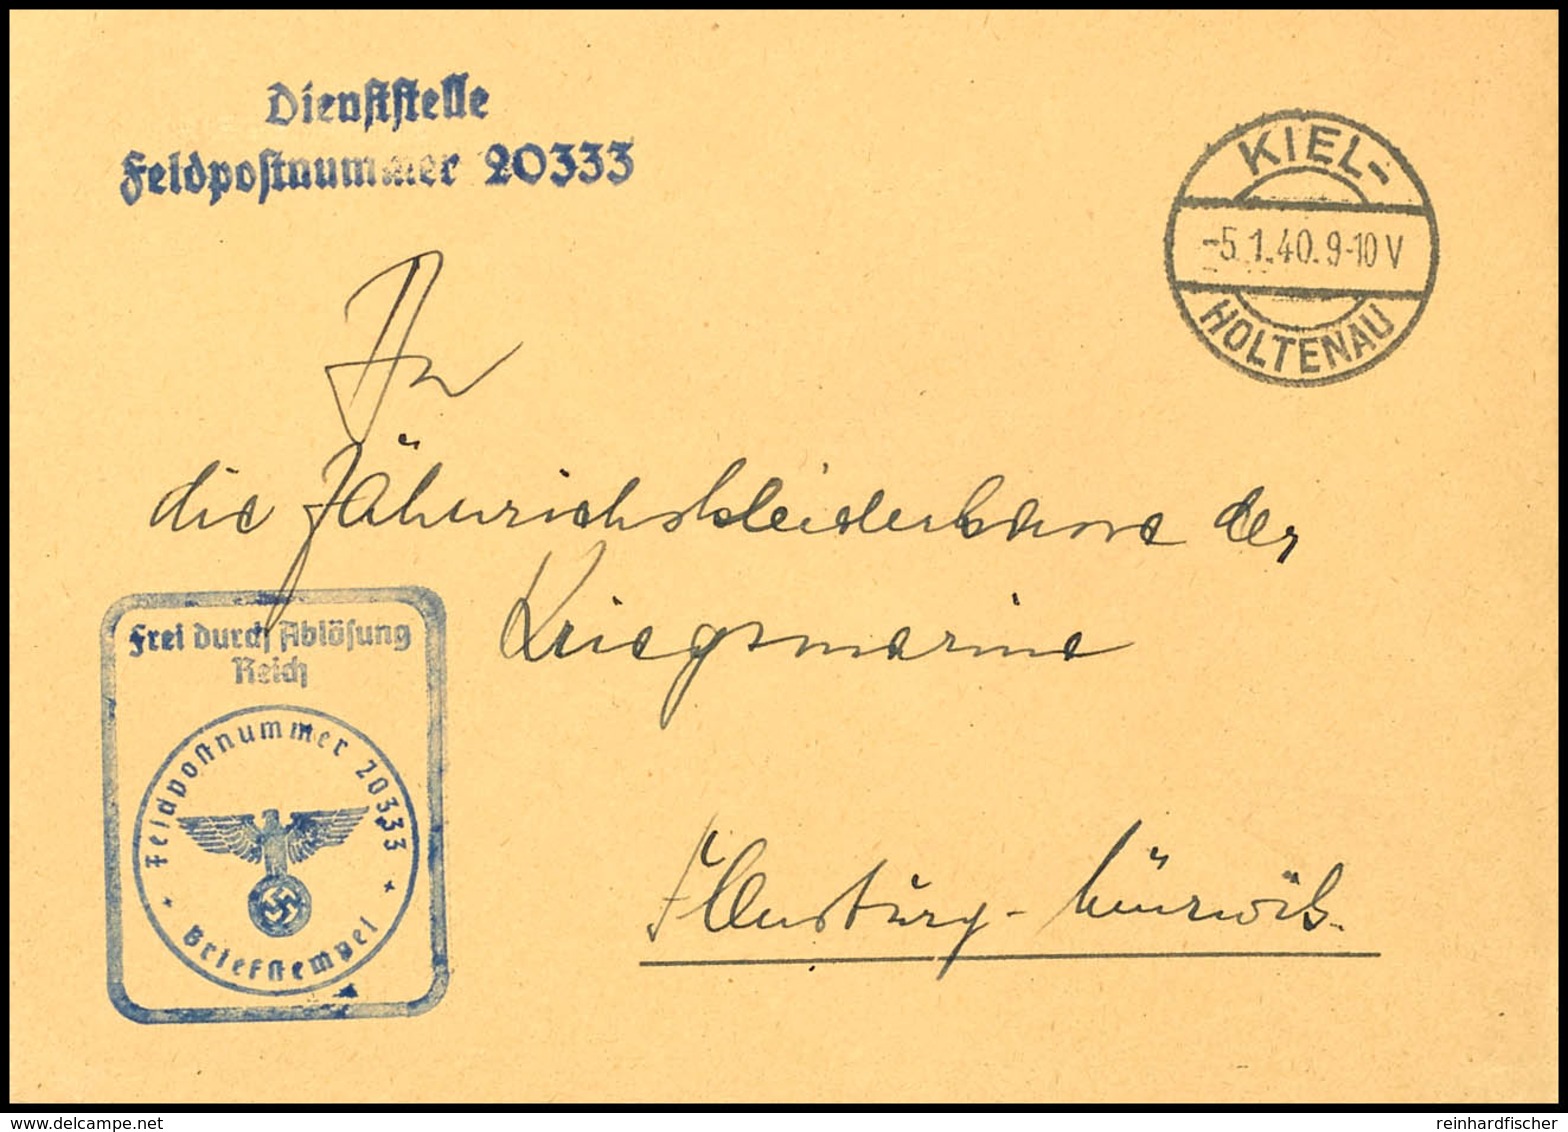 Dienststelle
Feldpostnummer 20333
KIEL-
-5.1.40.9-10 V
HOLTENAU
An
die Fähnrichskleiderkasse der
Kriegsmarine
Frei durch Ablösung
Reich
Feldpostnummer 20333
* Briefstempel *
Flensburg - Mürwik.
delcampe.net
reinhardfischer